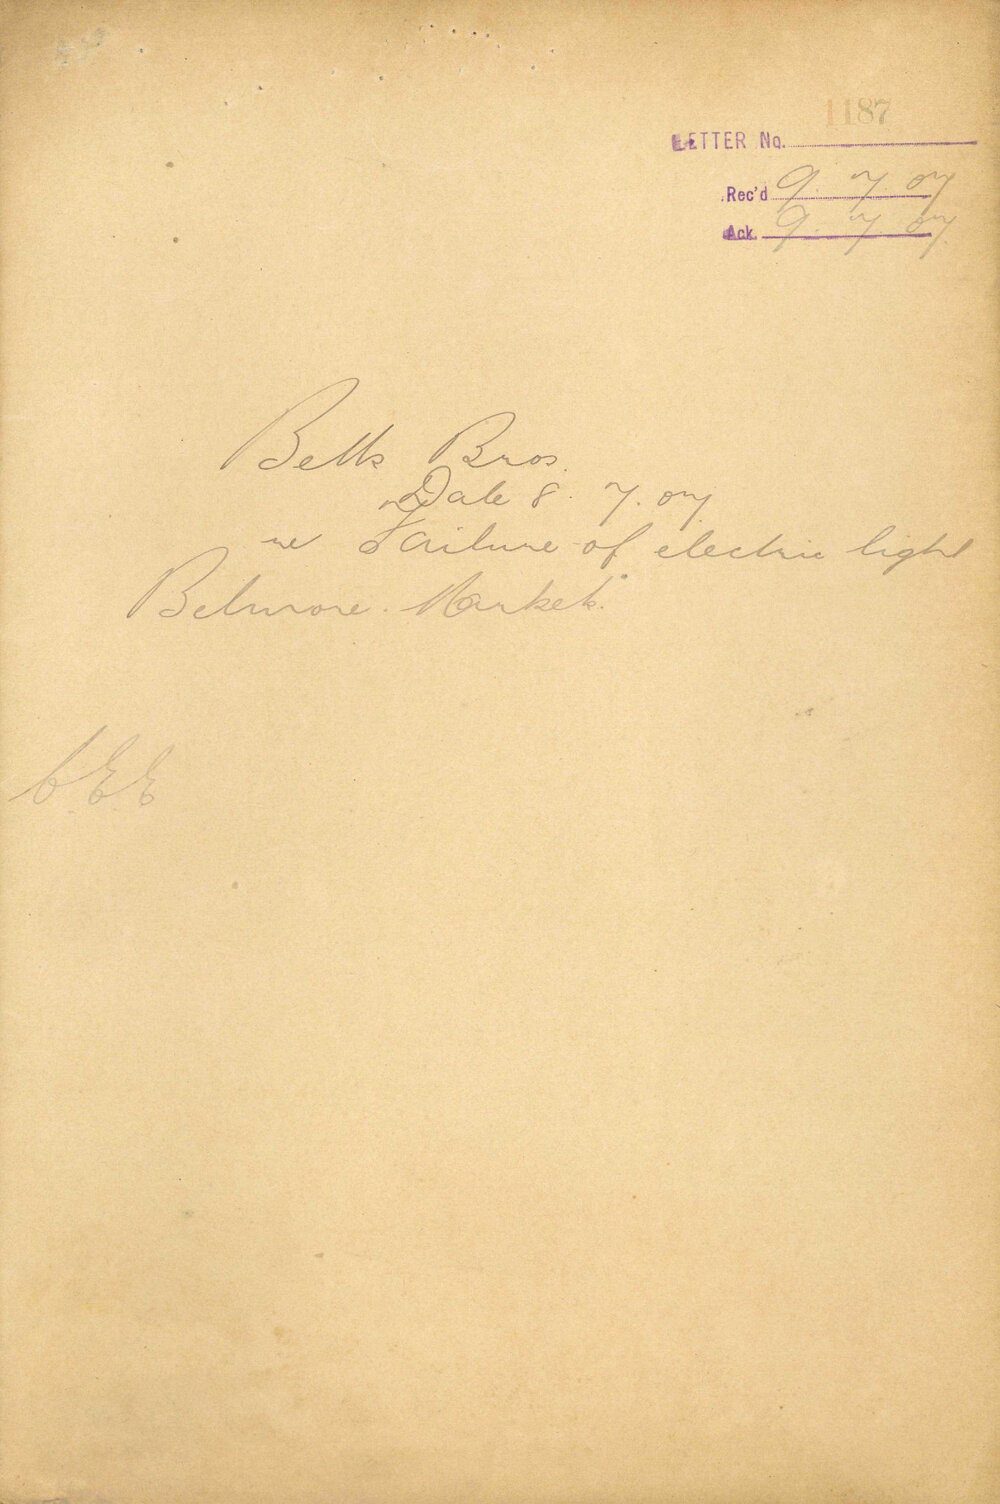 1187
LETTER No.
Rec'd 9. 7. 07
Ack. 9. 7. 07
Bros.
Date 8. 7. 07
re Failure of electric light
Belmore Markets.
C.E.E